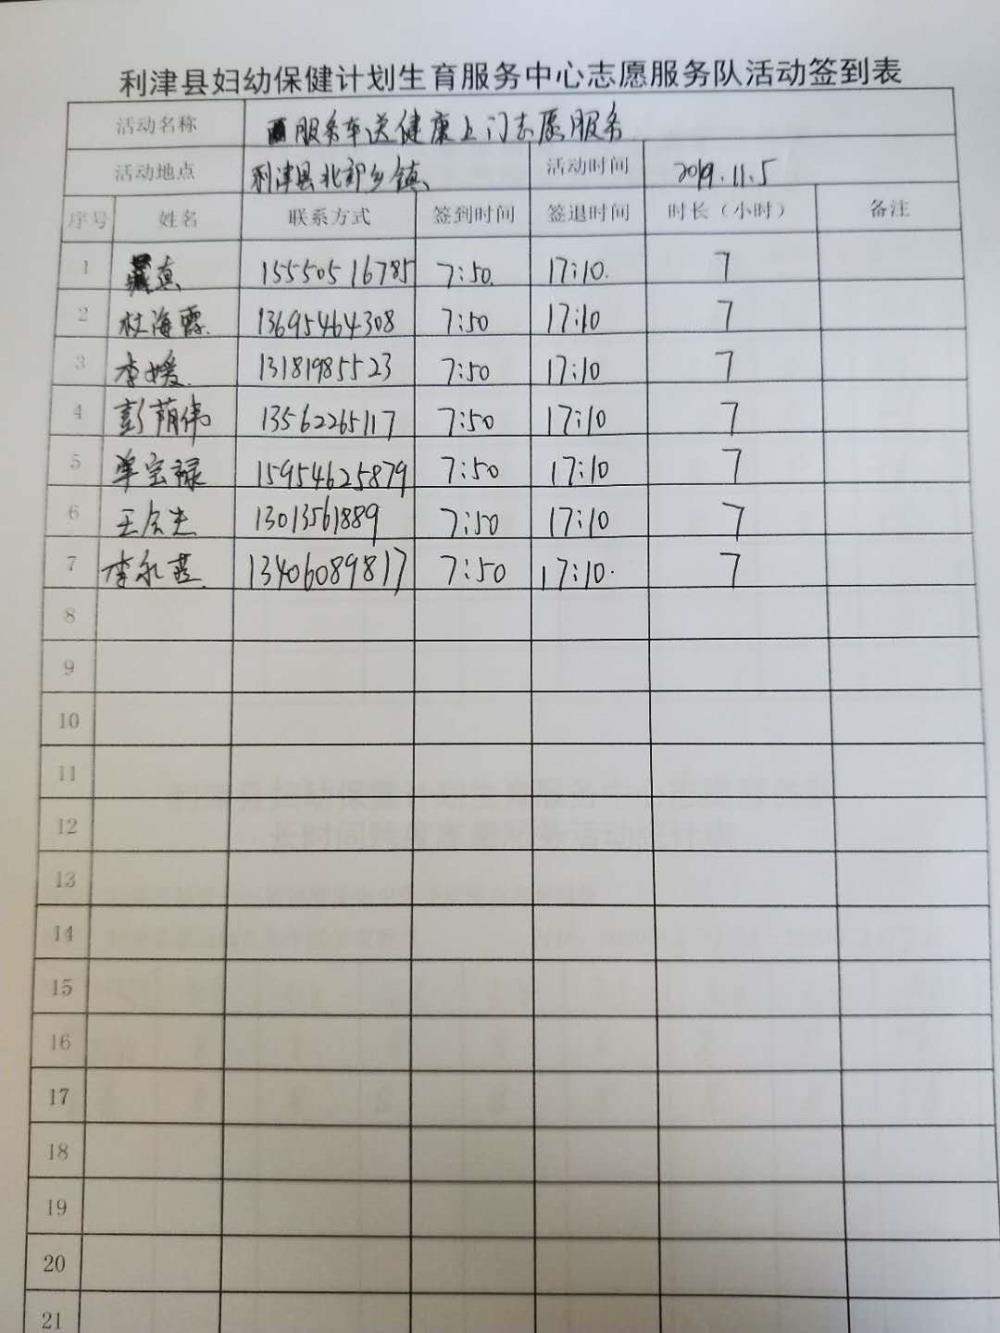 利津县妇幼保健计划生育服务中心志愿服务队活动签到表
活动名称 服务车送健康上门志愿服务
活动地点 利津县北部乡镇 活动时间 2019.11.5
序号 姓名 联系方式 签到时间 签退时间 时长（小时） 备注
1 真 15550516785 7:50 17:10 7
2 杜海霞 13695464308 7:50 17:10 7
3 李媛 13181985523 7:50 17:10 7
4 彭荫伟 13562265117 7:50 17:10 7
5 单宝禄 15954625879 7:50 17:10 7
6 王 13013561889 7:50 17:10 7
7 李永 13406089817 7:50 17:10 7
8
9
10
11
12
13
14
15
16
17
18
19
20
21